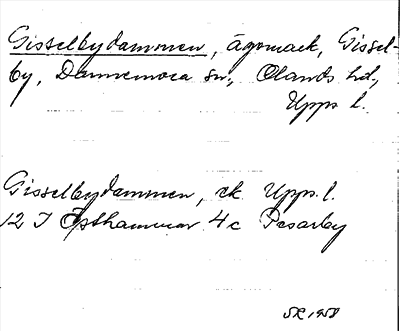 Gisselbydammen, ägomark, Gissel-
by, Dannemora sn., Olands hd,
Upps. l.
Gisselbydammen, ek Upps. l.
12 I Östhammar 4c Pesarby
SR 1958